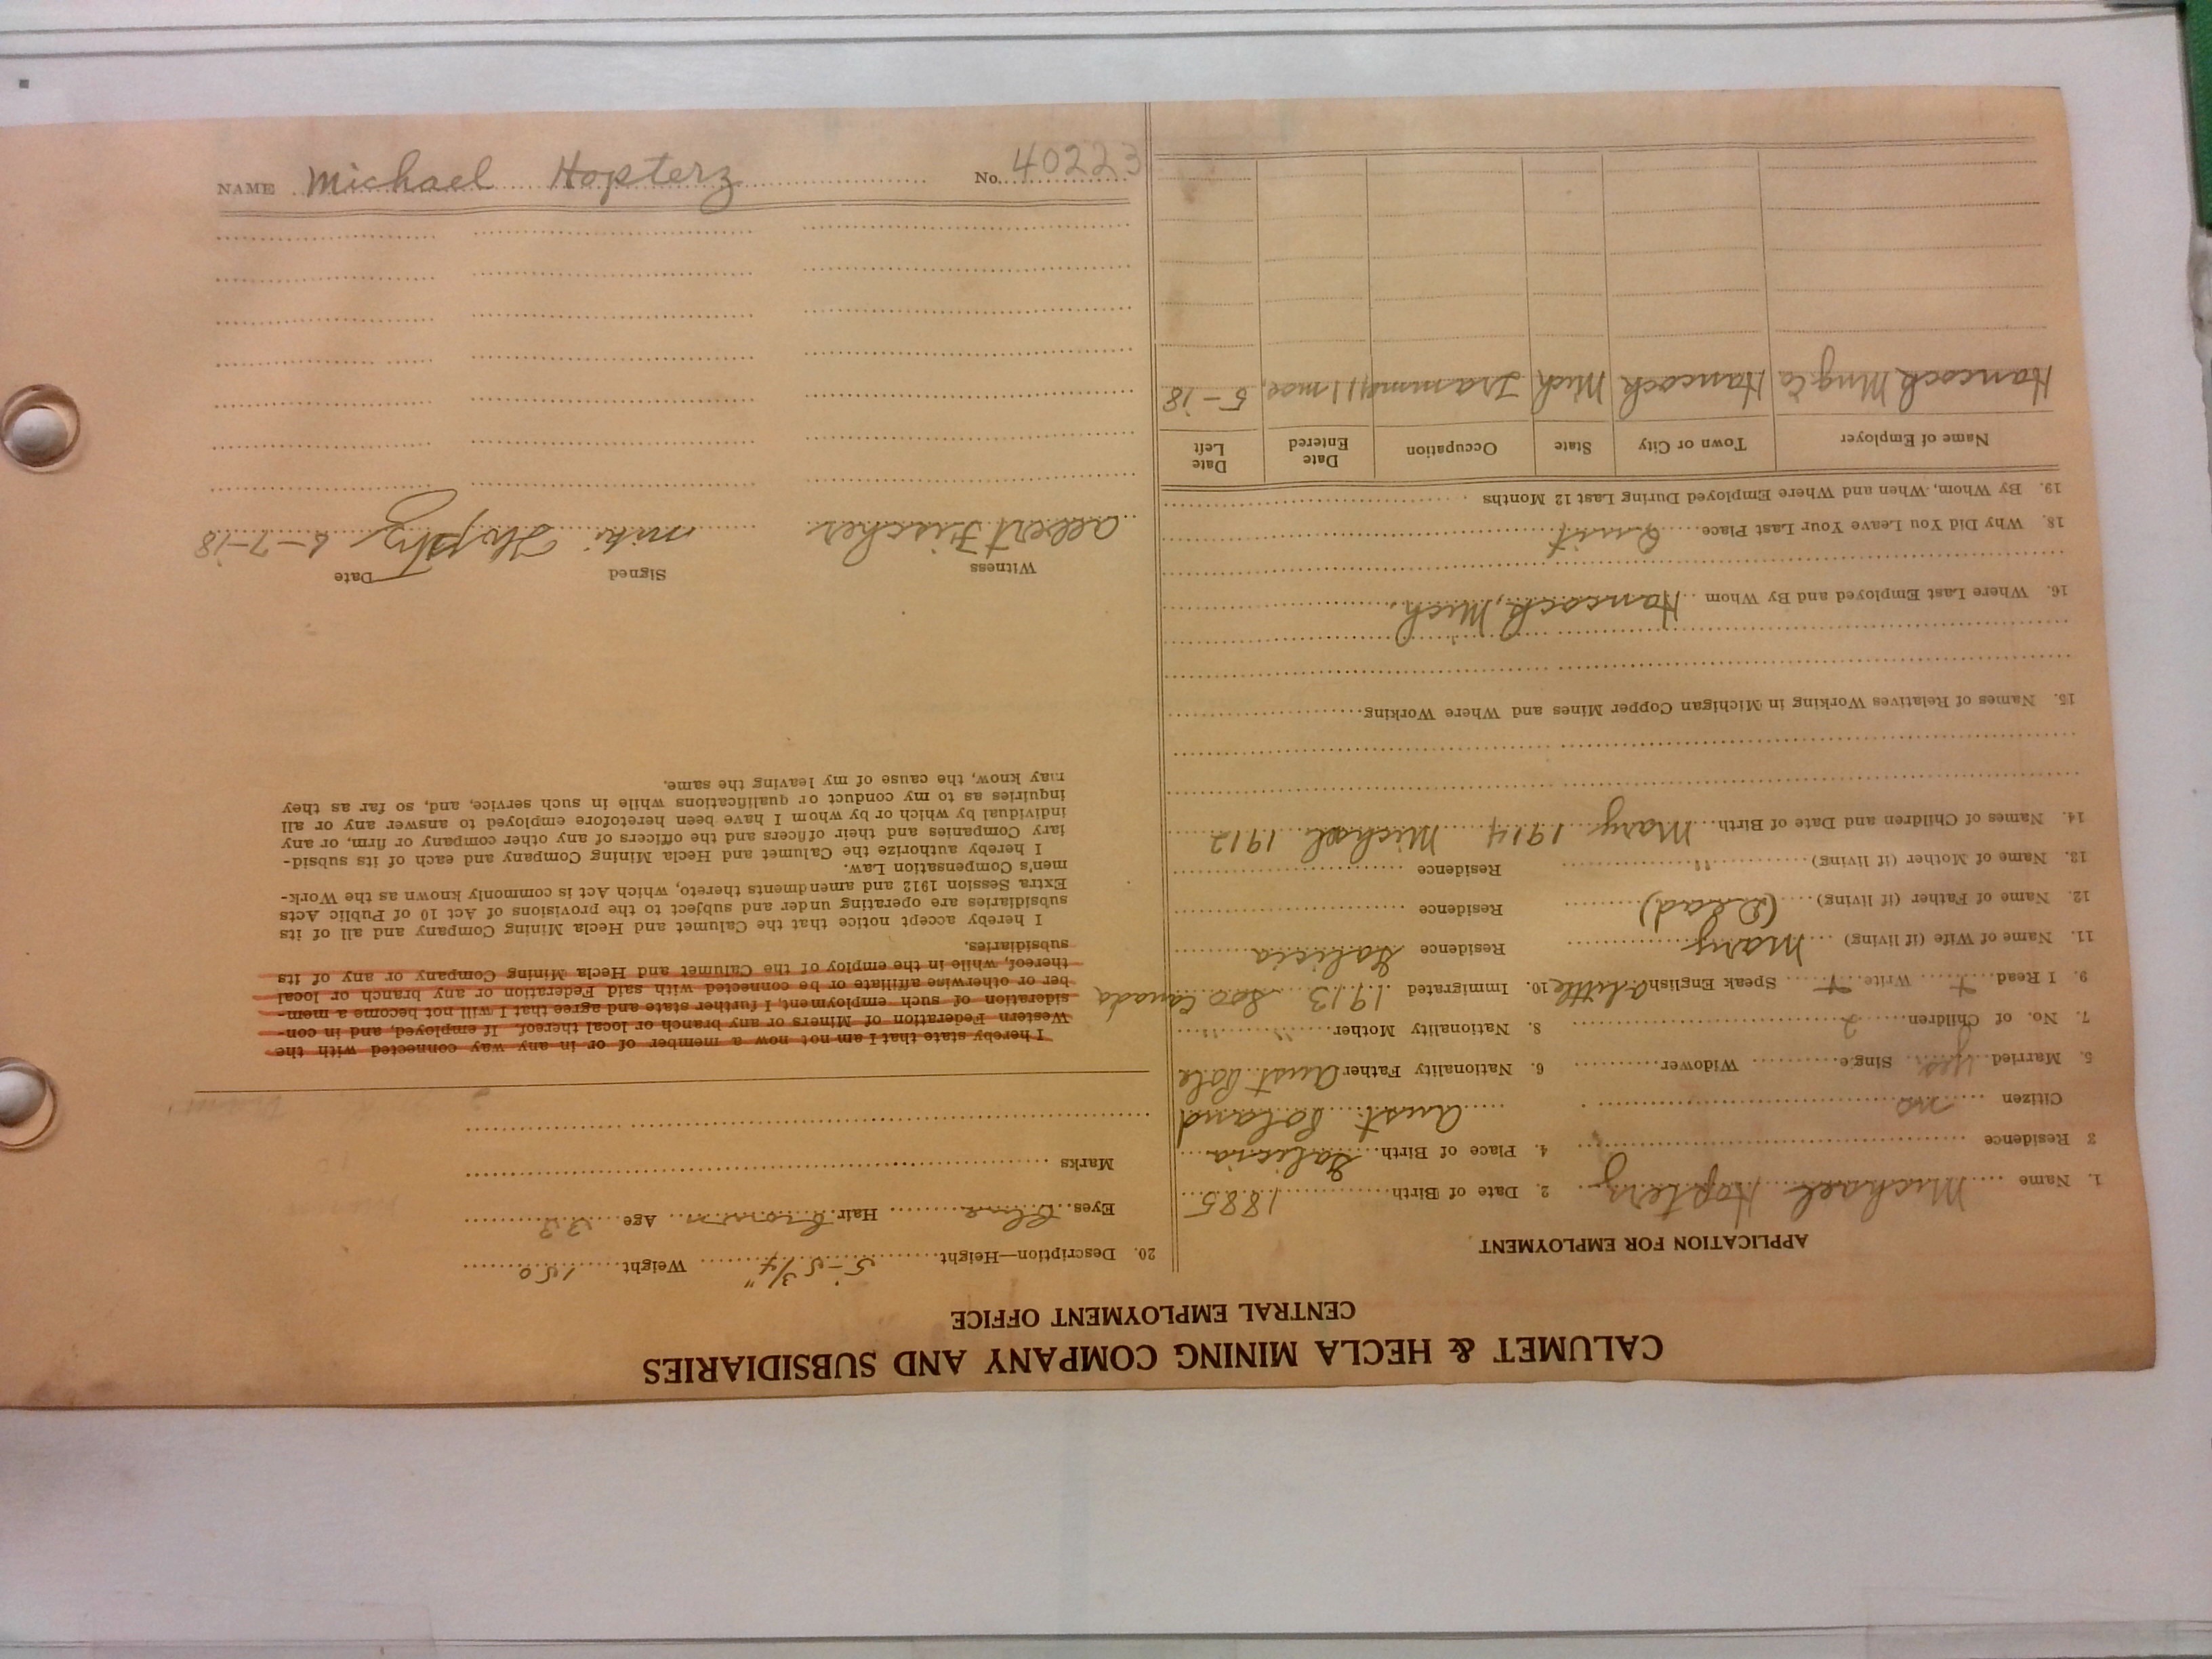 CALUMET & HECLA MINING COMPANY AND SUBSIDIARIES
CENTRAL EMPLOYMENT OFFICE
APPLICATION FOR EMPLOYMENT
1. Name Michael Hopterz 2. Date of Birth 1885
3 Residence 4. Place of Birth Galicia
Citizen no Aust. Poland
5. Married yes Single Widower 6. Nationality Father Aust Pole
7. No. of Children 2 8. Nationality Mother " "
9. I Read + Write + Speak English a little 10. Immigrated 1913 Soo Canada
11. Name of Wife (if living) Mary Residence Galicia
12. Name of Father (if living) (Dead) Residence
13. Name of Mother (if living) " Residence
14. Names of Children and Date of Birth Mary 1914 Michael 1912
15. Names of Relatives Working in Michigan Copper Mines and Where Working
16. Where Last Employed and By Whom Hancock, Mich.
18. Why Did You Leave Your Last Place Quit
19. By Whom, When and Where Employed During Last 12 Months
Name of Employer Town or City State Occupation Date Entered Date Left
Hancock Mng Co Hancock Mich Trammer 11 mos. 5-18
20. Description—Height 5-5 3/4" Weight 150
Eyes Blue Hair Brown Age 33
Marks
I hereby state that I am not now a member of or in any way connected with the
Western Federation of Miners or any branch or local thereof. If employed, and in con-
sideration of such employment, I further state and agree that I will not become a mem-
ber or otherwise affiliate or be connected with said Federation or any branch or local
thereof, while in the employ of the Calumet and Hecla Mining Company or any of its
subsidiaries.
I hereby accept notice that the Calumet and Hecla Mining Company and all of its
subsidiaries are operating under and subject to the provisions of Act 10 of Public Acts
Extra Session 1912 and amendments thereto, which Act is commonly known as the Work-
men's Compensation Law.
I hereby authorize the Calumet and Hecla Mining Company and each of its subsid-
iary Companies and their officers and the officers of any other company or firm, or any
individual by which or by whom I have been heretofore employed to answer any or all
inquiries as to my conduct or qualifications while in such service, and, so far as they
may know, the cause of my leaving the same.
Witness Signed Date
Albert Fischer 6-7-18
NAME Michael Hopterz No. 40223